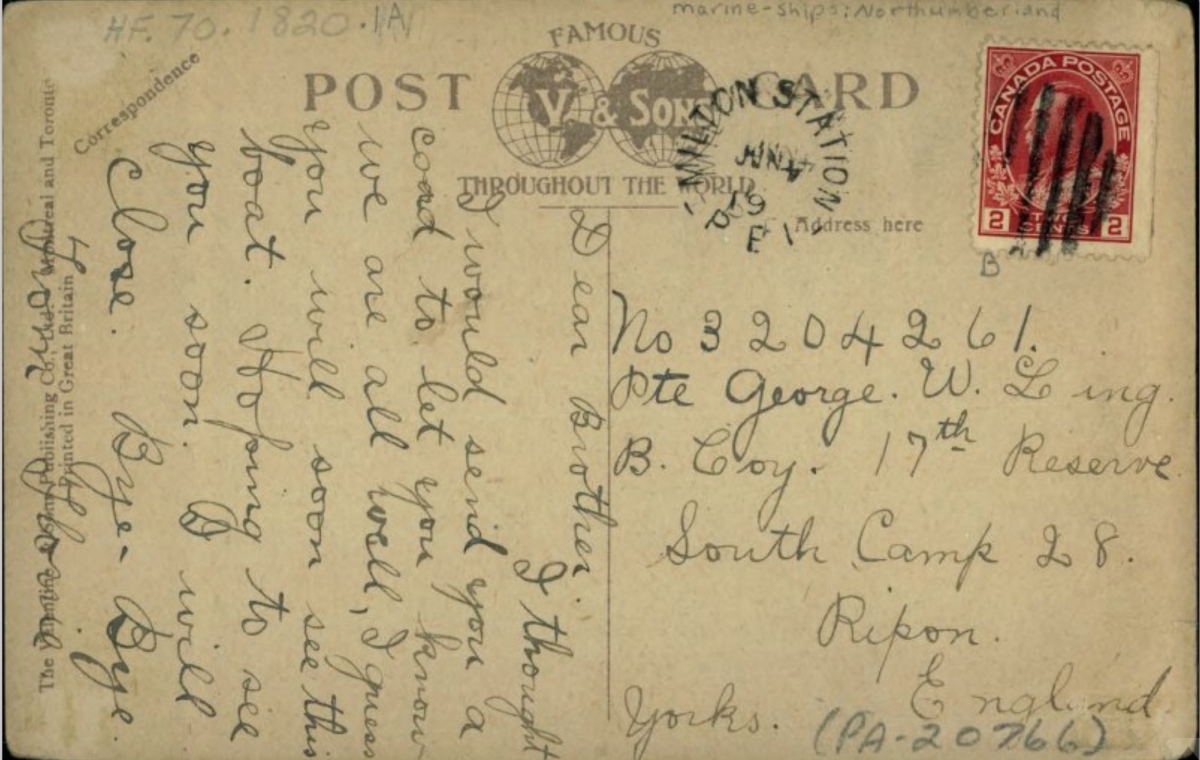 HF. 70. 1820.1A
marine-ships; Northumberland
Correspondence
FAMOUS
POST CARD
V. & SONS
THROUGHOUT THE WORLD
MILTON STATION
JUN
19
P E I
CANADA POSTAGE
2 CENTS 2
B
Address here
Dear Brother
I thought
I would send you a
card to let you know
we are all well, I guess
you will soon see this
boat. Hoping to see
you soon. I will
close. Bye-Bye.
No 3204261.
Pte George. W. Ling.
B. Coy. 17th Reserve
South Camp 28.
Ripon.
England
Yorks.
(PA-20766)
The Publishing Co., Ltd. Montreal and Toronto
Printed in Great Britain